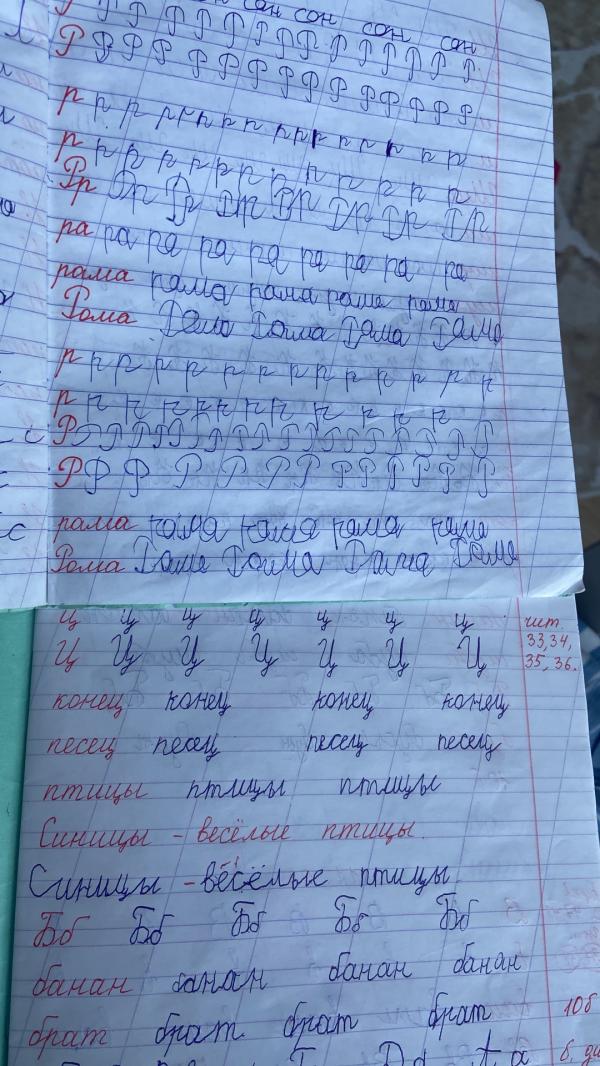 сон сон сон сон
Р Р Р Р Р Р Р Р Р Р Р Р Р
Р Р Р Р Р Р Р Р Р Р Р Р Р Р
р р р р р р р р р р р р р р р р р
р р р р р р р р р р р р р р
Рр Рр Рр Рр Рр Рр Рр Рр
ра ра ра ра ра ра ра ра ра
рама рама рама рама рама
Рома Рома Рома Рома Рома
р р р р р р р р р р р р р р р
р р р р р р р р р р р р
Р Р Р Р Р Р Р Р Р Р Р Р Р Р Р Р Р
Р Р Р Р Р Р Р Р Р Р Р Р Р
рама рама рама рама рама
Рома Рома Рома Рома Рома
ц ц ц ц ц ц ц чит.
Ц Ц Ц Ц Ц Ц Ц 33,34,
35, 36.
конец конец конец конец
песец песец песец песец
птицы птицы птицы
Синицы - весёлые птицы.
Синицы - весёлые птицы
Бб Бб Бб Бб Бб
банан банан банан банан
брат брат брат брат